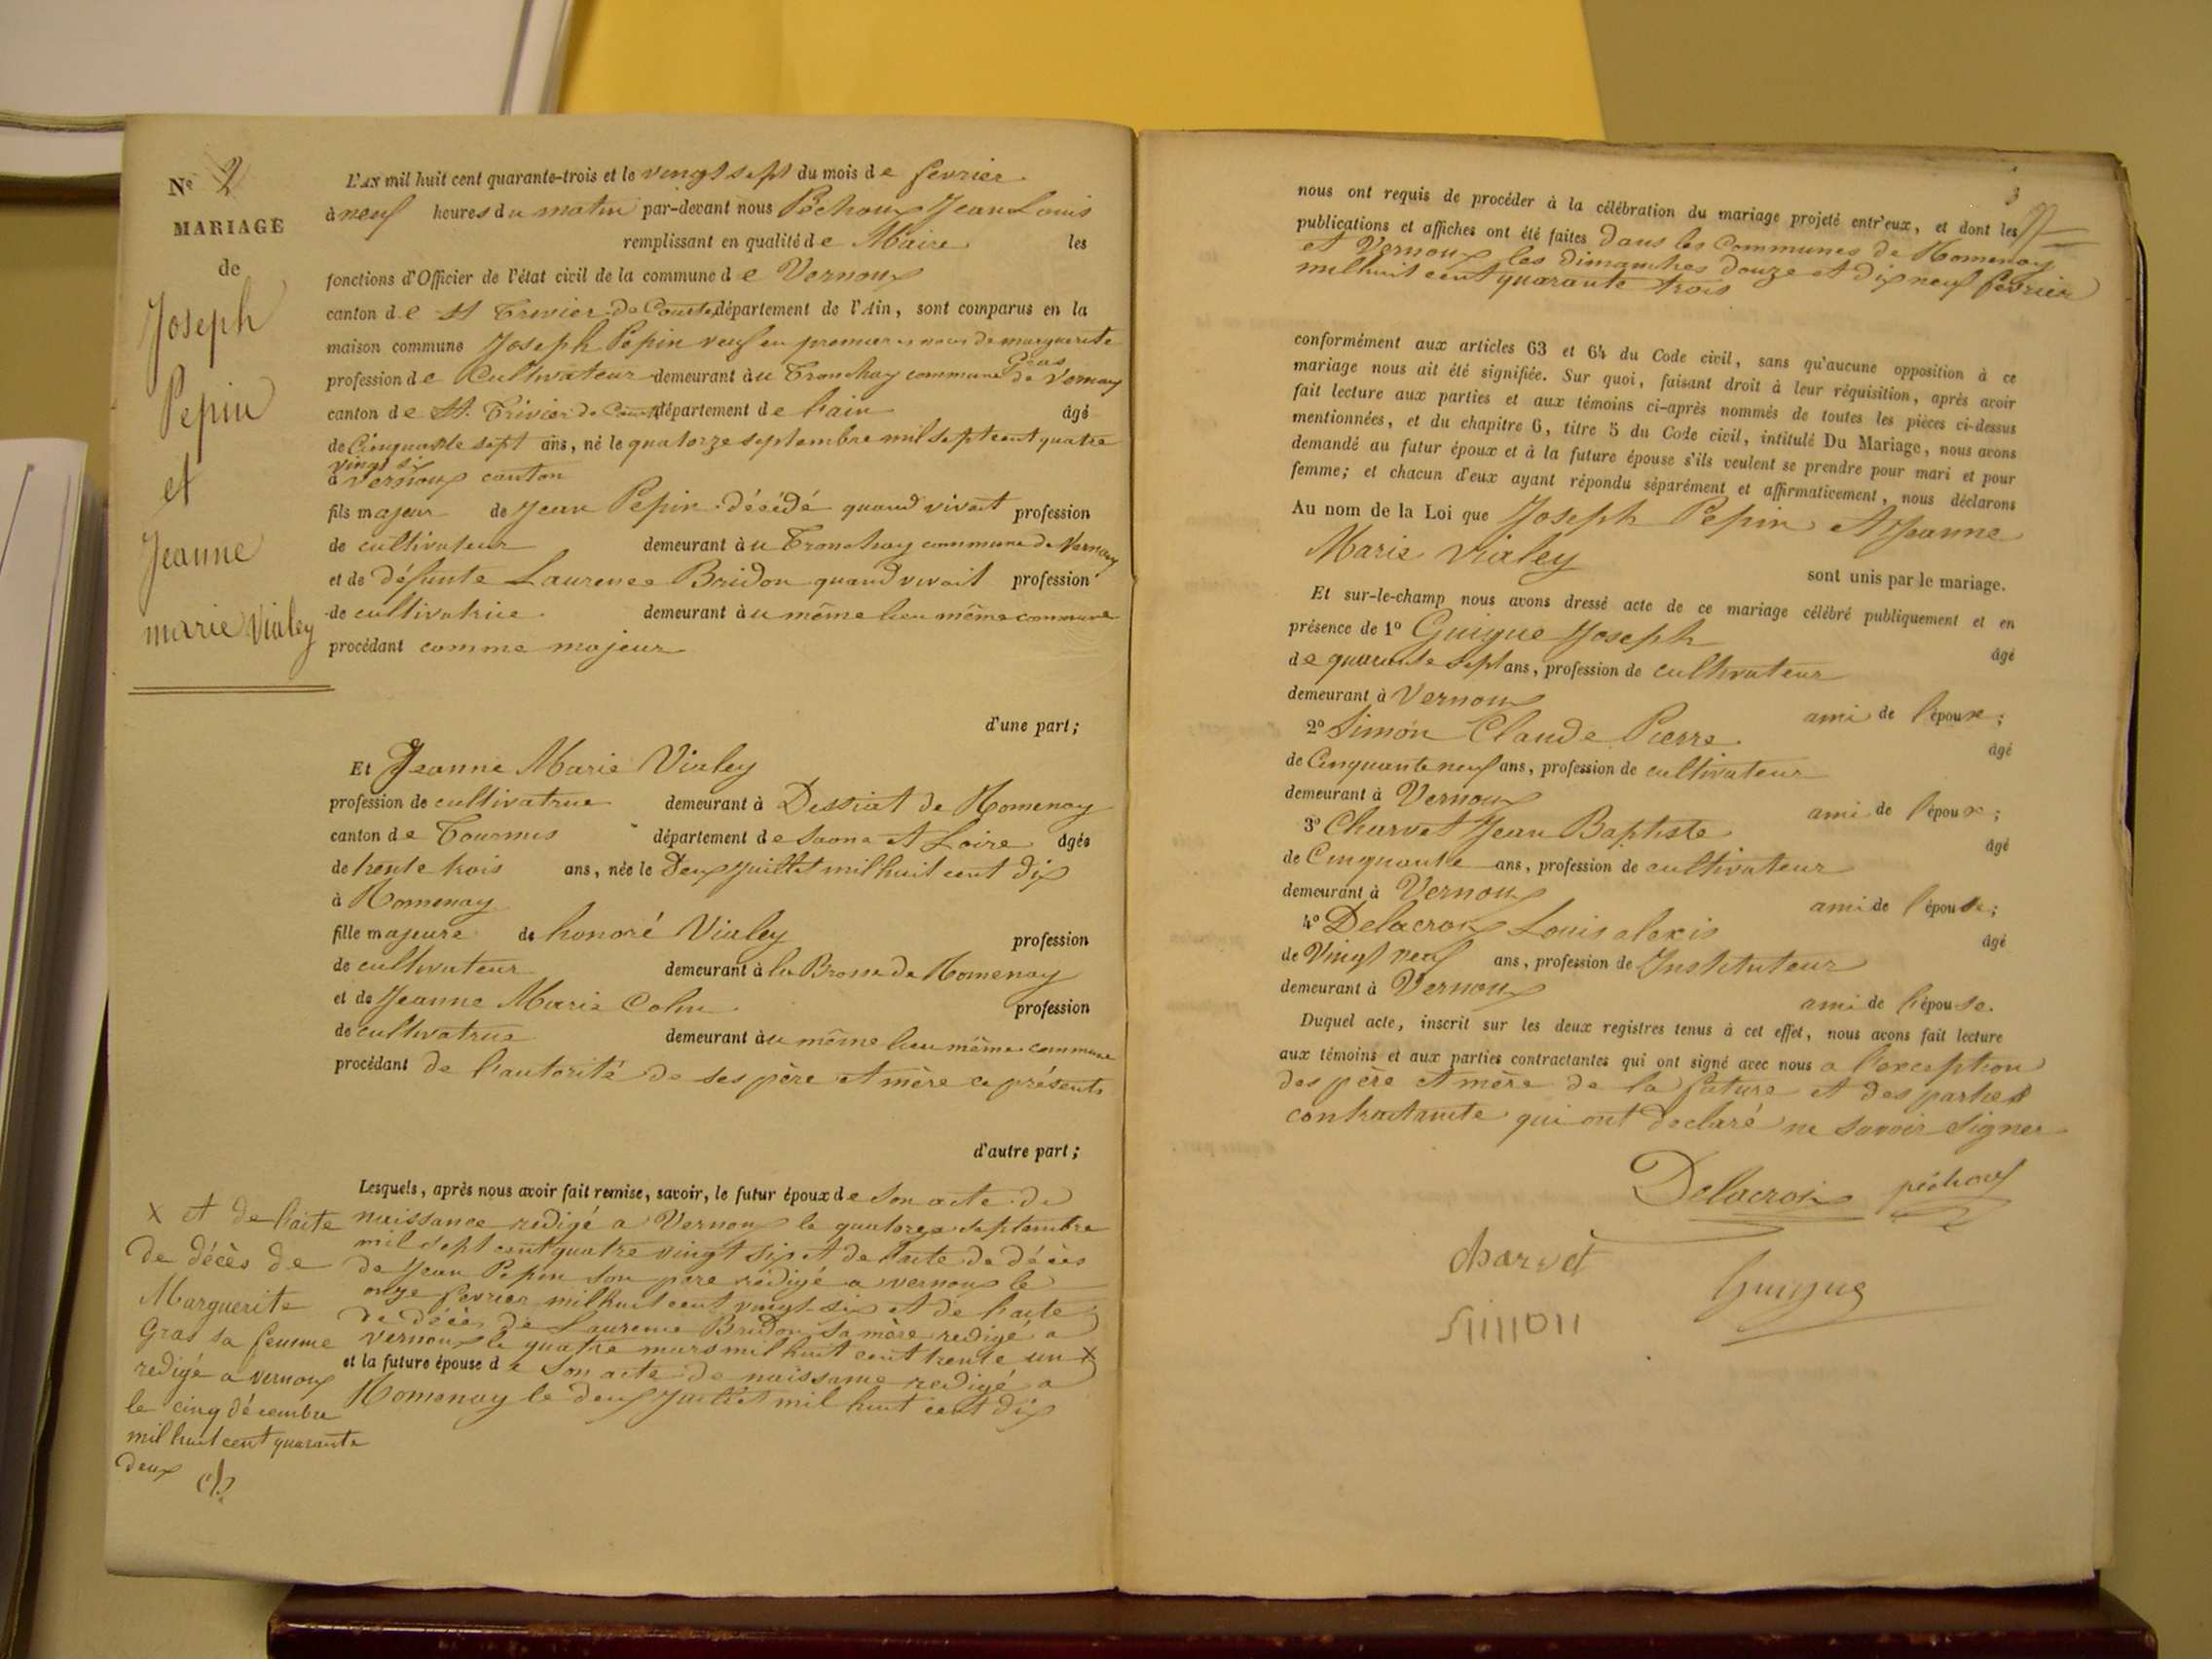 N° 2
MARIAGE
de
Joseph
Pepin
et
Jeanne
marie Vialey
L'AN mil huit cent quarante-trois et le vingt sept du mois de fevrier
à neuf heures du matin par-devant nous Pechoux Jean Louis
remplissant en qualité de Maire les
fonctions d'Officier de l'état civil de la commune de Vernoux
canton de St Trivier de Courtes département de l'Ain, sont comparus en la
maison commune Joseph Pepin veuf en premieres noces de marguerite
Gras
profession de Cultivateur demeurant à u Tronchay commune de Vernoux
canton de St. Trivier de Courtes département de l'ain âgé
de Cinquante sept ans, né le quatorze septembre mil sept cent quatre
vingt six
à Vernoux canton
fils majeur de Jean Pepin décédé quand vivait profession
de cultivateur demeurant à u Tronchay commune de Vernoux
et de défunte Laurence Bridon quand vivait profession
de cultivatrice demeurant à u même lieu même commune
procédant comme majeur
d'une part;
Et Jeanne Marie Vialey
profession de cultivatrice demeurant à Dessiat de Romenay
canton de Tournus département de Saone et Loire âgée
de trente trois ans, née le Deux juillet mil huit cent dix
à Romenay
fille majeure de honoré Vialey profession
de cultivateur demeurant à la Brosse de Romenay
et de Jeanne Marie Colin profession
de cultivatrice demeurant à u même lieu même commune
procédant de l'autorité de ses père et mère ce présents
d'autre part;
Lesquels, après nous avoir fait remise, savoir, le futur époux de son acte de
naissance redigé a Vernoux le quatorze septembre
mil sept cent quatre vingt six et de l'acte de décès
de Jean Pepin son pere redigé a vernoux le
onze fevrier mil huit cent vingt six et de l'acte
de décès de Laurence Bridon sa mère redigé a
vernoux le quatre mars mil huit cent trente un X
et la future épouse de son acte de naissance redigé a
Romenay le deux juillet mil huit cent dix
X et de l'acte
de décès de
Marguerite
Gras sa femme
redigé a vernoux
le cinq décembre
mil huit cent quarante
deux
3
nous ont requis de procéder à la célébration du mariage projeté entr'eux, et dont les
publications et affiches ont été faites dans les Communes de Romenay
et Vernoux les dimanches douze et dix neuf fevrier
mil huit cent quarante trois
conformément aux articles 63 et 64 du Code civil, sans qu'aucune opposition à ce
mariage nous ait été signifiée. Sur quoi, faisant droit à leur réquisition, après avoir
fait lecture aux parties et aux témoins ci-après nommés de toutes les pièces ci-dessus
mentionnées, et du chapitre 6, titre 5 du Code civil, intitulé Du Mariage, nous avons
demandé au futur époux et à la future épouse s'ils veulent se prendre pour mari et pour
femme; et chacun d'eux ayant répondu séparément et affirmativement, nous déclarons
Au nom de la Loi que Joseph Pepin et Jeanne
Marie Vialey
sont unis par le mariage.
Et sur-le-champ nous avons dressé acte de ce mariage célébré publiquement et en
présence de 1° Guigue Joseph
âgé
de quarante sept ans, profession de cultivateur
demeurant à Vernoux
ami de l'époux;
2° Simon Claude Pierre
âgé
de Cinquante neuf ans, profession de cultivateur
demeurant à Vernoux
ami de l'époux;
3° Charvet Jean Baptiste
âgé
de Cinquante ans, profession de cultivateur
demeurant à Vernoux
ami de l'épouse;
4° Delacroix Louis alexis
âgé
de Vingt neuf ans, profession de Instituteur
demeurant à Vernoux
ami de l'épouse.
Duquel acte, inscrit sur les deux registres tenus à cet effet, nous avons fait lecture
aux témoins et aux parties contractantes qui ont signé avec nous a l'exception
des père et mère de la future et des parties
contractante qui ont declaré ne savoir signer
Delacroix péchoux
charvet
Guigue
Simon